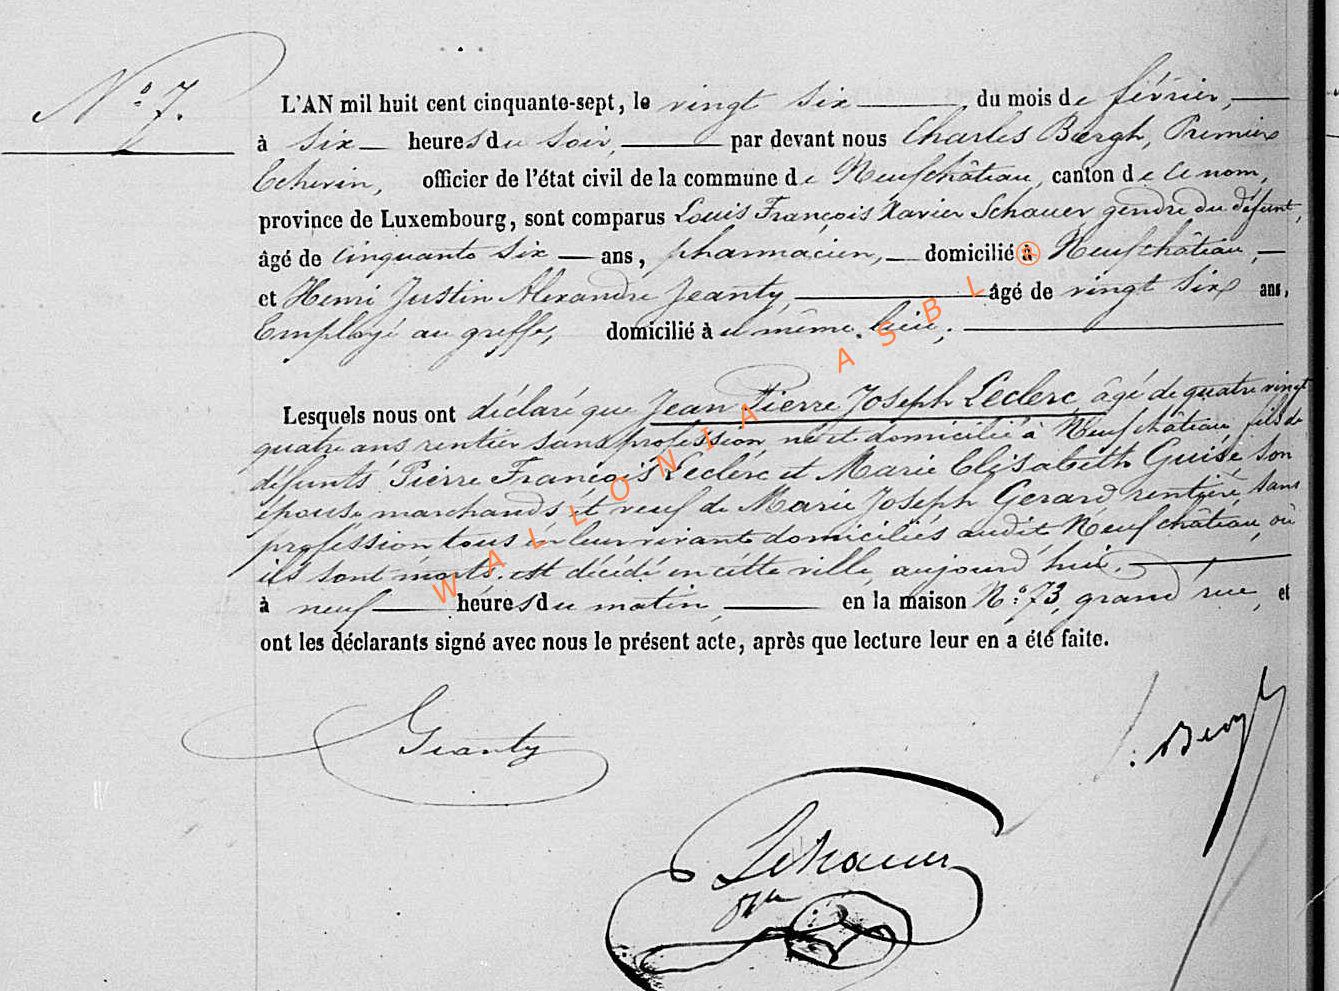 N° 7.
L'AN mil huit cent cinquante-sept, le vingt six du mois de février,
à six heures du soir, par devant nous Charles Bergh, Premier
Echevin, officier de l'état civil de la commune de Neufchâteau, canton de ce nom,
province de Luxembourg, sont comparus Louis François Xavier Schauer gendre du défunt,
âgé de cinquante six ans, pharmacien, domicilié à Neufchâteau,
et Henri Justin Alexandre Jeanty, âgé de vingt six ans,
Employé au greffe, domicilié à u même lieu;
Lesquels nous ont déclaré que Jean Pierre Joseph Leclerc âgé de quatre vingt
quatre ans rentier sans profession né et domicilié à Neufchâteau fils de
défunts Pierre François Leclerc et Marie Elisabeth Guise son
épouse marchands et veuf de Marie Joseph Gerard rentière, sans
profession tous en leur vivant domiciliés audit Neufchâteau, où
ils sont morts. est décédé en cette ville, aujourd'hui,
à neuf heures du matin, en la maison N° 73, grand rue, et
ont les déclarants signé avec nous le présent acte, après que lecture leur en a été faite.
Jeanty
Schauer
WALLONIA ASBL ®